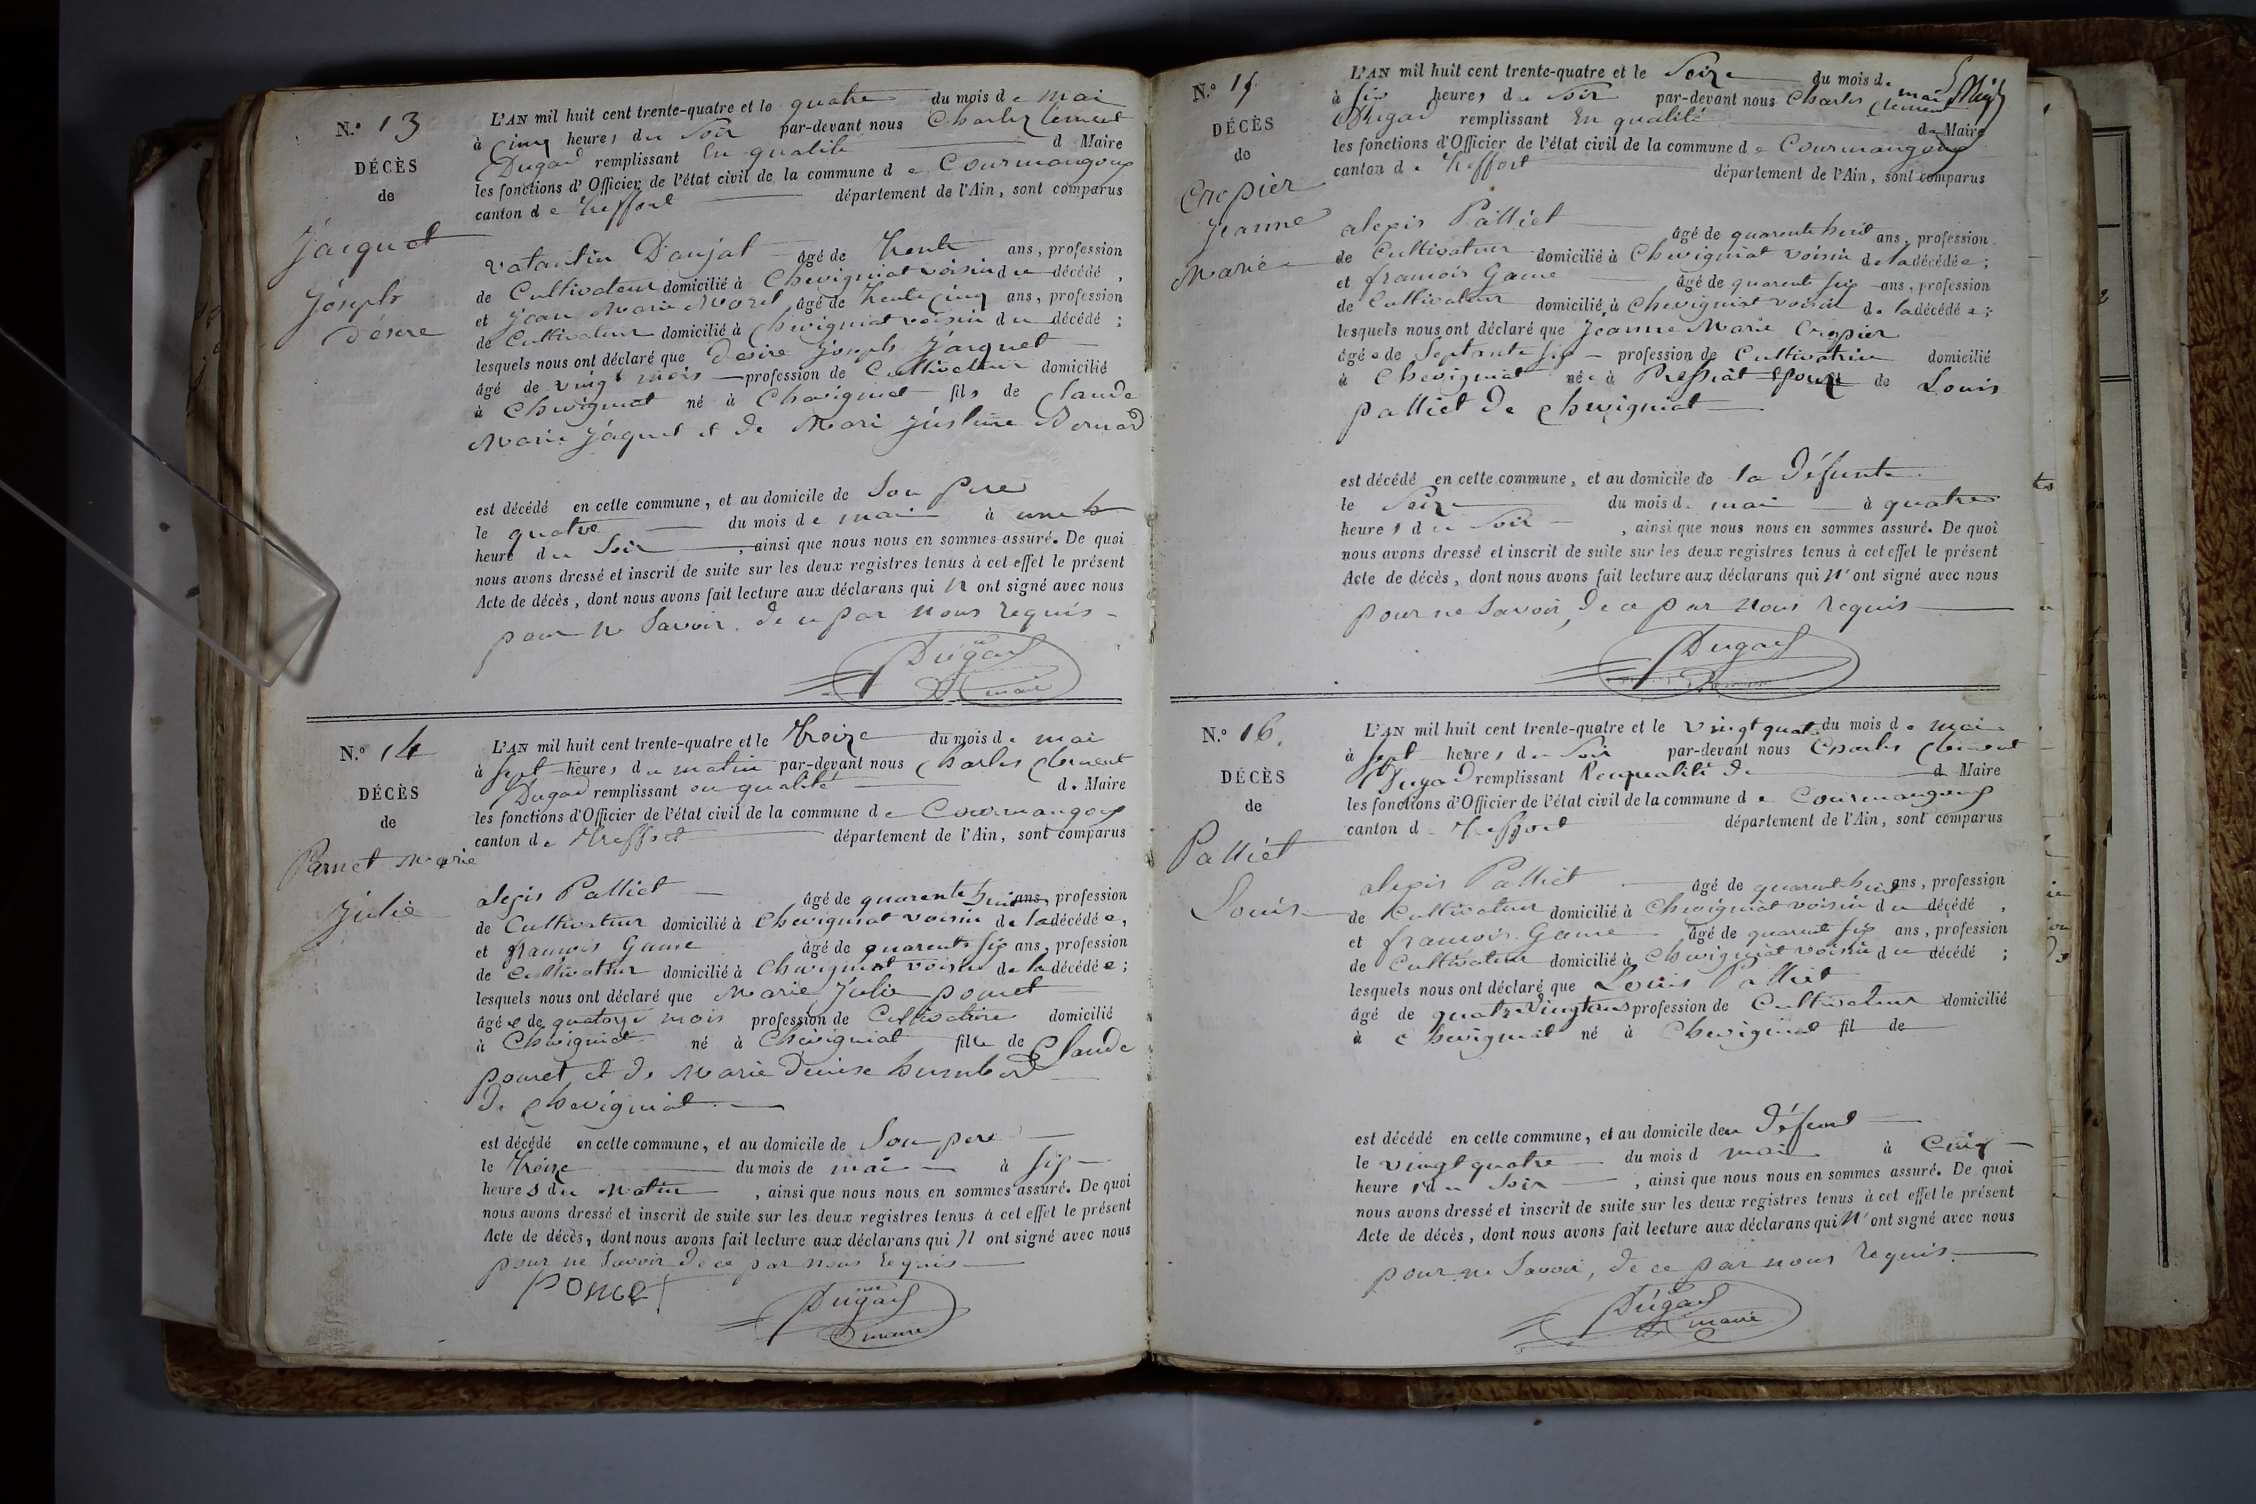 N.º 13
DÉCÈS
de
Jacquet
Joseph
Désire
L'AN mil huit cent trente-quatre et le quatre du mois de mai
à cinq heures du soir par-devant nous Charles Clement
Dugad remplissant En qualité d Maire
les fonctions d'Officier de l'état civil de la commune de Courmangoux
canton de Treffort département de l'Ain, sont comparus
Daujat âgé de trente ans, profession
de Cultivateur domicilié à Chevigniat voisin du décédé,
et Jean Marie Morel âgé de trente cinq ans, profession
de Cultivateur domicilié à Chevigniat voisin du décédé;
lesquels nous ont déclaré que desire Joseph Jacquet
âgé de vingt mois profession de Cultivateur domicilié
à Chevigniat né à Chevigniat fils de Claude
Marie Jaquet et de Mari Justine
est décédé en cette commune, et au domicile de Son pere
le quatre du mois de mai à une h
heure du Soir, ainsi que nous nous en sommes assuré. De quoi
nous avons dressé et inscrit de suite sur les deux registres tenus à cet effet le présent
Acte de décès, dont nous avons fait lecture aux déclarans qui n ont signé avec nous
pour ne Savoir de ce par nous requis
Dugad
maire
N.º 14
DÉCÈS
de
Marie
Julie
L'AN mil huit cent trente-quatre et le treize du mois de mai
à sept heures du matin par-devant nous Charles Clement
Dugad remplissant en qualité de Maire
les fonctions d'Officier de l'état civil de la commune de Courmangoux
canton de Treffort département de l'Ain, sont comparus
alexis Palliet âgé de quarente huit ans, profession
de Cultivateur domicilié à Chevigniat voisin de la décédée,
et francois Game âgé de quarente six ans, profession
de Cultivateur domicilié à Chevigniat voisin de la décédée;
lesquels nous ont déclaré que Marie Julie poncet
âgée de quatorze mois profession de Cultivatrice domicilié
à Chevigniat né à Chevigniat fille de Claude
poncet et de Marie Denise
de Chevigniat
est décédé en cette commune, et au domicile de Son pere
le treize du mois de mai à six
heures du matin, ainsi que nous nous en sommes assuré. De quoi
nous avons dressé et inscrit de suite sur les deux registres tenus à cet effet le présent
Acte de décès, dont nous avons fait lecture aux déclarans qui n ont signé avec nous
pour ne Savoir de ce par nous requis
poncet
Dugad
maire
N.º 15
DÉCÈS
de
Cropier
Jeanne
Marie
L'AN mil huit cent trente-quatre et le Seize du mois de mai
à six heures du Soir par-devant nous Charles Clement
Dugad remplissant En qualité de Maire
les fonctions d'Officier de l'état civil de la commune de Courmangoux
canton de Treffort département de l'Ain, sont comparus
alexis Palliet âgé de quarente huit ans, profession
de Cultivateur domicilié à Chevigniat voisin de la décédée;
et francois Game âgé de quarent six ans, profession
de Cultivateur domicilié à Chevigniat voisin de la décédée;
lesquels nous ont déclaré que Jeanne Marie Cropier
âgée de Septante six profession de Cultivatrice domicilié
à Chevigniat née à Pressiat Epouse de Louis
palliet de Chevigniat
est décédé en cette commune, et au domicile de la Défunte
le Seize du mois de mai à quatre
heures du Soir, ainsi que nous nous en sommes assuré. De quoi
nous avons dressé et inscrit de suite sur les deux registres tenus à cet effet le présent
Acte de décès, dont nous avons fait lecture aux déclarans qui n' ont signé avec nous
pour ne Savoir, de ce par nous requis
Dugad
N.º 16
DÉCÈS
de
Palliet
Louis
L'AN mil huit cent trente-quatre et le vingt quatre du mois de mai
à sept heures du Soir par-devant nous Charles Clement
Dugad remplissant En qualité de d Maire
les fonctions d'Officier de l'état civil de la commune de Courmangoux
canton de Treffort département de l'Ain, sont comparus
alexis Palliet âgé de quarent huit ans, profession
de Cultivateur domicilié à Chevigniat voisin du décédé,
et francois Game âgé de quarent six ans, profession
de Cultivateur domicilié à Chevigniat voisin du décédé;
lesquels nous ont déclaré que Louis Palliet
âgé de quatre vingt ans profession de Cultivateur domicilié
à Chevigniat né à Chevigniat fil de
est décédé en cette commune, et au domicile deu Défunt
le vingt quatre du mois d mai à cinq
heures du Soir, ainsi que nous nous en sommes assuré. De quoi
nous avons dressé et inscrit de suite sur les deux registres tenus à cet effet le présent
Acte de décès, dont nous avons fait lecture aux déclarans qui n' ont signé avec nous
pour ne Savoir, de ce par nous requis
Dugad
maire